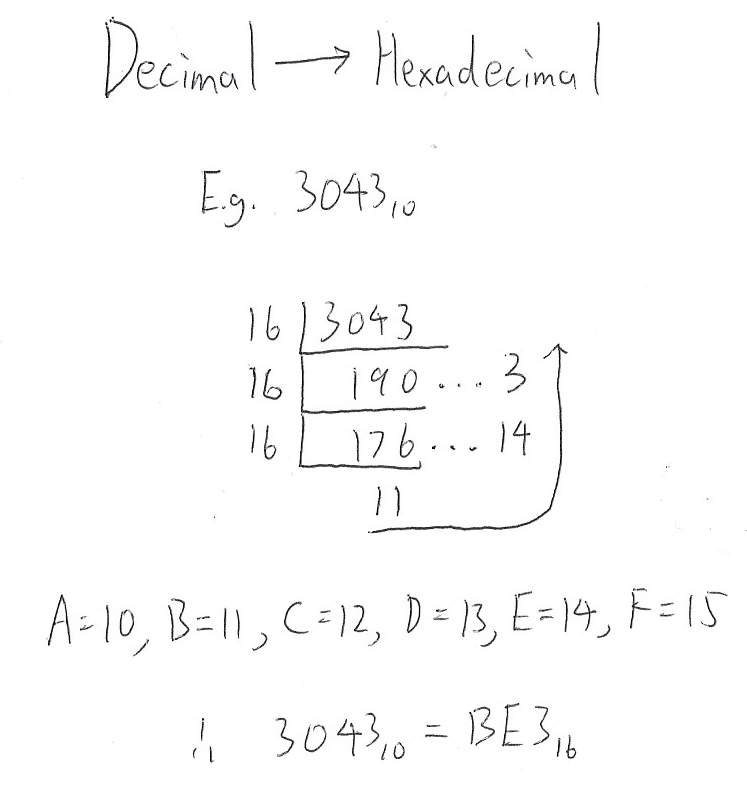 Decimal → Hexadecimal
E.g. 3043₁₀
16 3043
16 190 ... 3
16 176 ... 14
11
A=10, B=11, C=12, D=13, E=14, F=15
∴ 3043₁₀ = BE3₁₆